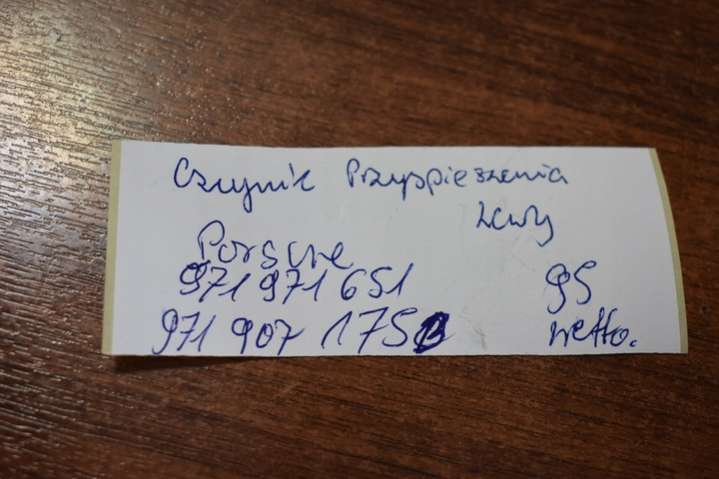 Czynnik Przyspieszenia
Lewy
Porsche
971 971 651 95
971 907 175B netto.